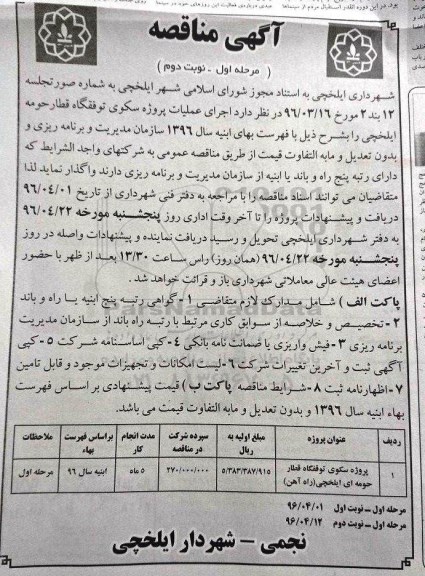 آگهی مناقصه
( مرحله اول - نوبت دوم )
شهرداری ایلخچی به استناد مجوز شورای اسلامی شهر ایلخچی به شماره صورتجلسه
۱۲ بند ۲ مورخ ۹۶/۰۳/۱۶ در نظر دارد اجرای عملیات پروژه سکوی توفقگاه قطارحومه
ایلخچی را بشرح ذیل با فهرست بهای ابنیه سال ۱۳۹۶ سازمان مدیریت و برنامه ریزی و
بدون تعدیل و مابه التفاوت قیمت از طریق مناقصه عمومی به شرکتهای واجد الشرایط که
دارای رتبه پنج راه و باند یا ابنیه از سازمان مدیریت و برنامه ریزی دارند واگذار نماید لذا
متقاضیان می توانند اسناد مناقصه را با مراجعه به دفتر فنی شهرداری از تاریخ ۹۶/۰۴/۰۱
دریافت و پیشنهادات پروژه را تا آخر وقت اداری روز پنجشنبه مورخه ۹۶/۰۴/۲۲
به دفتر شهرداری ایلخچی تحویل و رسید دریافت نماینده و پیشنهادات واصله در روز
پنجشنبه مورخه ۹۶/۰۴/۲۲ (همان روز) راس ساعت ۱۳/۳۰ بعد از ظهر با حضور
اعضای هیئت عالی معاملاتی شهرداری باز و قرائت خواهد شد.
پاکت الف ) شامل مدارک لازم متقاضی ۱ - گواهی رتبه پنج ابنیه یا راه و باند
۲ - تخصیص و خلاصه از سوابق کاری مرتبط با رتبه راه باند از سازمان مدیریت
برنامه ریزی ۳ - فیش واریزی یا ضمانت نامه بانکی ۴ - کپی اساسنامه شرکت ۵ - کپی
آگهی ثبت و آخرین تغییرات شرکت ۶ - لیست امکانات و تجهیزات موجود و قابل تامین
۷ - اظهارنامه ثبت ۸ - شرایط مناقصه پاکت ب ) قیمت پیشنهادی بر اساس فهرست
بهاء ابنیه سال ۱۳۹۶ و بدون تعدیل و مابه التفاوت قیمت می باشد.
ردیف عنوان پروژه مبلغ اولیه به ریال سپرده شرکت در مناقصه مدت انجام کار براساس فهرست بهاء ملاحظات
۱ پروژه سکوی توفقگاه قطار حومه ای ایلخچی (راه آهن) ۵/۳۸۳/۳۸۷/۹۱۵ ۲۷۰/۰۰۰/۰۰۰ ۵ ماه ابنیه سال ۹۶ مرحله اول
مرحله اول - نوبت اول ۹۶/۰۴/۰۱
مرحله اول - نوبت دوم ۹۶/۰۴/۱۲
نجمی - شهردار ایلخچی